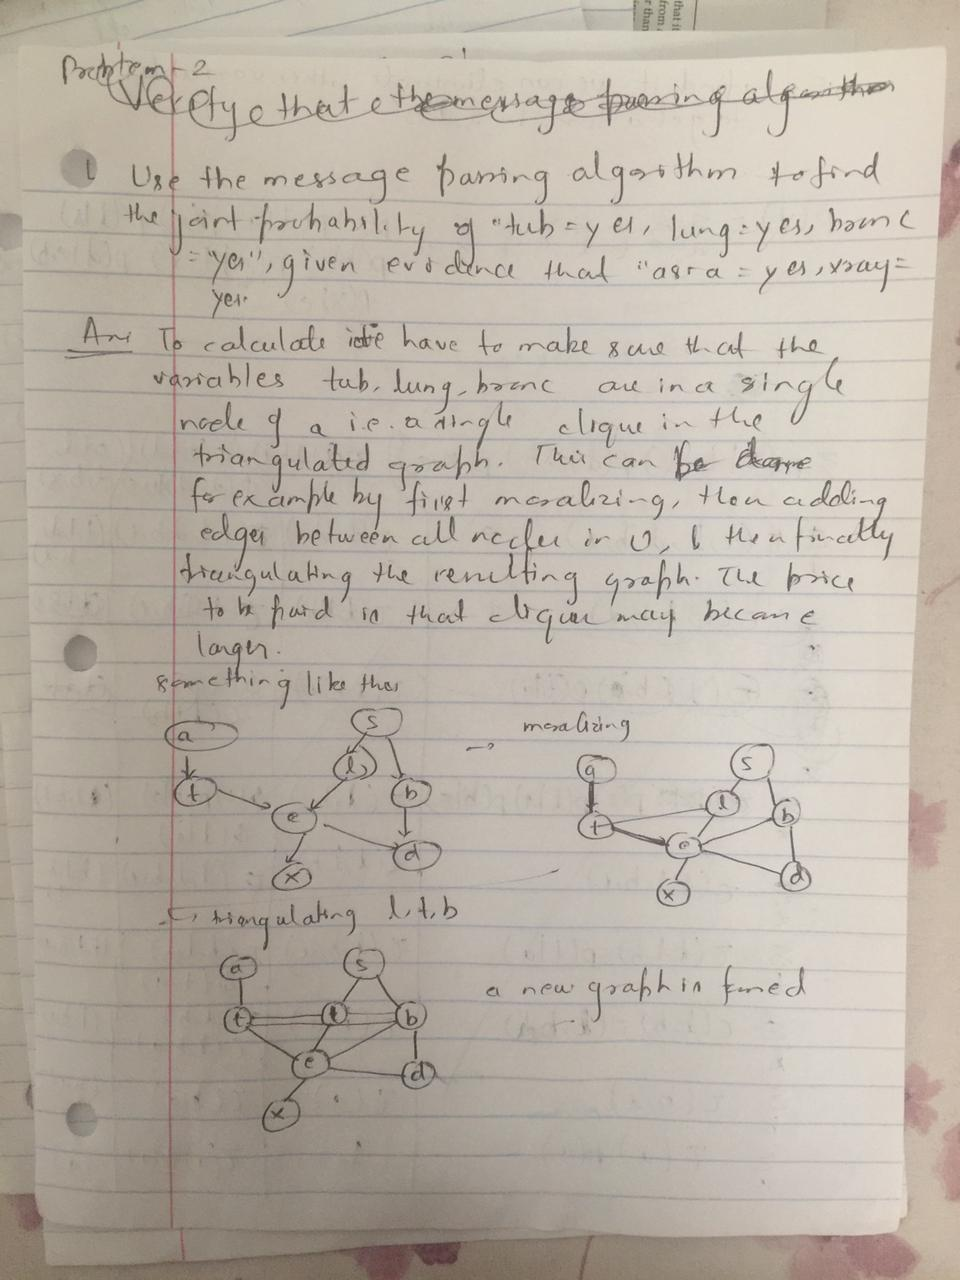 that it
from
r than
Problem - 2
Verify that the message passing algorithm
1 Use the message passing algorithm to find
the joint probability of "tub = yes, lung = yes, bronc
= yes", given evidence that "asia = yes, xray =
yes.
Ans To calculate we have to make sure that the
variables tub, lung, bronc are in a single
node of a i.e. a single clique in the
triangulated graph. This can be done
for example by first moralizing, then adding
edges between all nodes in U, & then finally
triangulating the resulting graph. The price
to be paid is that cliques may become
larger.
something like this
a s → moralizing
t l b
e
x d
a s
t l b
e
x d
↳ triangulating l, t, b
a s
t l b
e
x d
a new graph is formed